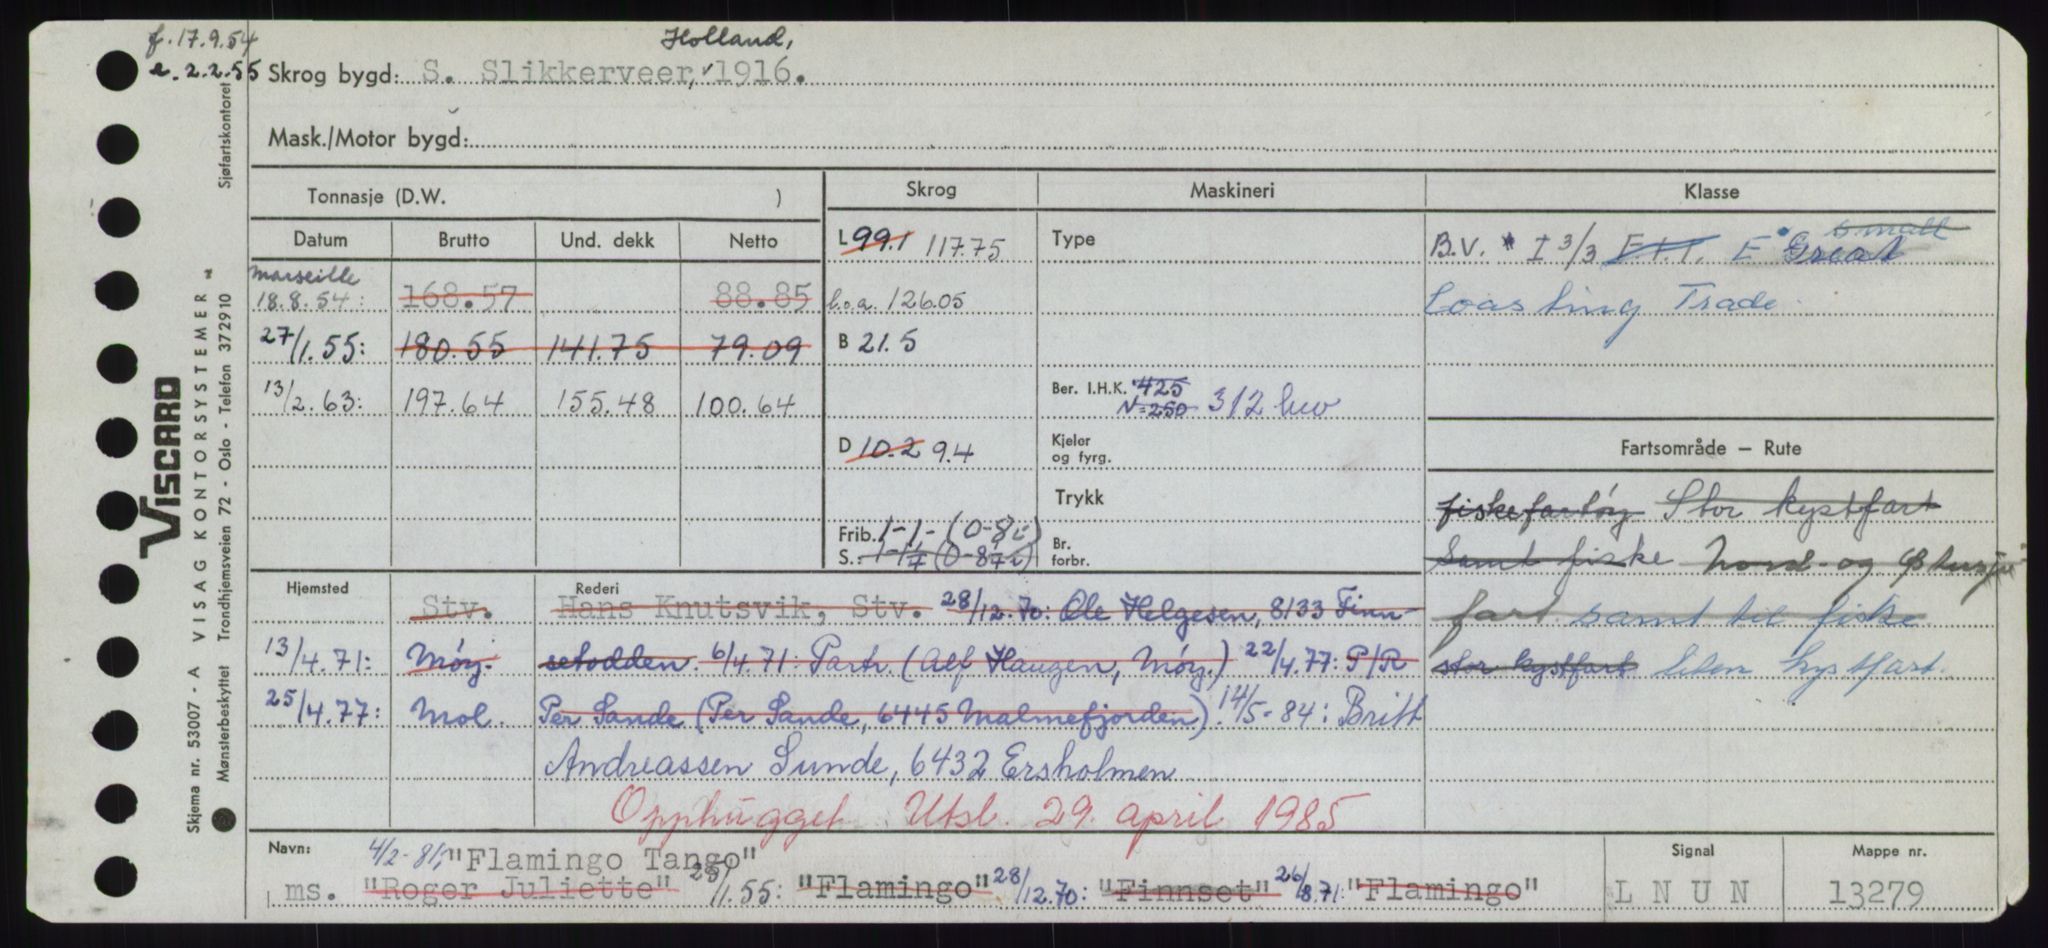 f. 17.9.54
e. 2.2.55
Holland,
Skrog bygd: S. Slikkerveer, 1916.
Mask./Motor bygd:
Sjøfartskontoret
VISCARD
Skjema nr. 53007 - A VISAG KONTORSYSTEMER
Mønsterbeskyttet Trondhjemsveien 72 - Oslo - Telefon 372910
Tonnasje (D.W. ) Skrog Maskineri Klasse
Datum Brutto Und. dekk Netto
Marseille
18.8.54: 168.57 88.85
27/1.55: 180.55 141.75 79.09
13/2.63: 197.64 155.48 100.64
L 99.1 117.75
l.o.a. 126.05
B 21.5
D 10.2 9.4
Frib. 1-1- (0-8½)
S.:
Type
Ber. I.H.K. 425
N=250 312 hw
Kjeler
og fyrg.
Trykk
Br.
forbr.
small
B.V. * I 3/3 E Great
Coasting Trade.
Fartsområde – Rute
fiskefartøy Stor kystfart
Samt fiske Nord- og Østersjø
fart samt til fiske
stor kystfart liten kystfart.
Hjemsted Rederi
Stv. Hans Knutsvik, Stv. 28/12.70: Ole Helgesen, 8133 Finn-
13/4.71: Møy. setodden. 6/4.71: Partr. (Alf Haugen, Møy.) 22/4.77: P/R
25/4.77: Mol. Per Sande (Per Sande, 6445 Malmefjorden). 14/5-84: Britt
Andreassen Sunde, 6432 Ersholmen
Opphugget Utsl. 29. april 1985
Navn: 4/2-81: "Flamingo Tango"
ms. "Roger Juliette" 25/1.55: "Flamingo" 28/12.70: "Finnset" 26/8.71: "Flamingo"
Signal
L N U N
Mappe nr.
13279